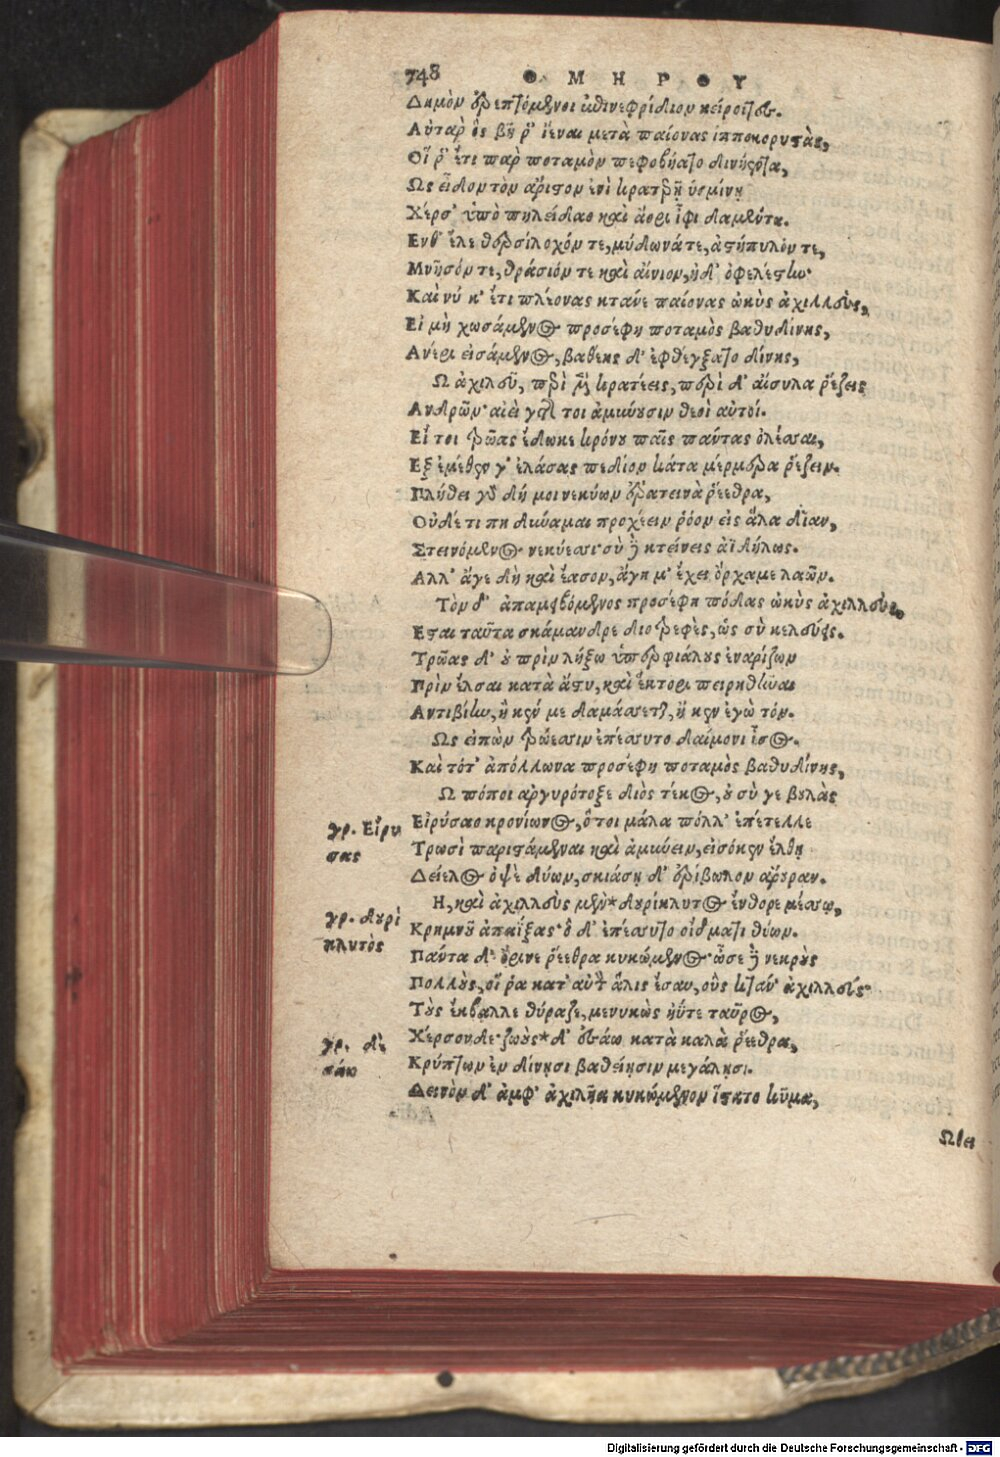 748 ΟΜΗΡΟΥ
Δημὸν ἐρεπτόμενοι ἐπινεφρίδιον κείροντες.
Αὐτὰρ ὃς βῆ ῥ' ἰέναι μετὰ παίονας ἱπποκορυστὰς,
Οἵ ῥ' ἔτι παρ ποταμὸν πεφοβήατο δινήεντα,
Ως εἶδον τὸν ἄριστον ἐνὶ κρατερῇ ὑσμίνῃ
Χέρσ' ὑπὸ πηλείδαο καὶ ἄορι ἶφι δαμέντα.
Ενθ' ἕλε θερσίλοχόν τε, μύδωνά τε, ἀστύπυλόν τε,
Μνῆσόν τε, θράσιόν τε καὶ αἴνιον, ἠδ' ὀφελέστην·
Καὶ νύ κ' ἔτι πλέονας κτάνε παίονας ὠκὺς ἀχιλλεὺς,
Εἰ μὴ χωσάμενος προσέφη ποταμὸς βαθυδίνης,
Ανέρι εἰσάμενος, βαθέης δ' ἐφθέγξατο δίνης,
Ω ἀχιλεῦ, περὶ μὲν κρατέεις, περὶ δ' αἴσυλα ῥέζεις
Ανδρῶν· αἰεὶ γάρ τοι ἀμύνουσιν θεοὶ αὐτοί.
Εἴ τοι τρῶας ἔδωκε κρόνου παῖς πάντας ὀλέσσαι,
Εξ ἐμέθεν γ' ἐλάσας πεδίον κάτα μέρμερα ῥέζειν.
Πλήθει γὰρ δή μοι νεκύων ἐρατεινὰ ῥέεθρα,
Οὐδέ τι πη δύναμαι προχέειν ῥόον εἰς ἅλα δῖαν,
Στεινόμενος νεκύεσσι· σὺ δὲ κτείνεις ἀϊδήλως.
Αλλ' ἄγε δὴ καὶ ἔασον, ἄγη μ' ἔχει ὄρχαμε λαῶν.
Τὸν δ' ἀπαμειβόμενος προσέφη πόδας ὠκὺς ἀχιλλεύς,
Εσται ταῦτα σκάμανδρε διοτρεφὲς, ὡς σὺ κελεύεις.
Τρῶας δ' οὐ πρὶν λήξω ὑπερφιάλους ἐναρίζων
Πρὶν ἔλσαι κατὰ ἄστυ, καὶ ἕκτορι πειρηθῆναι
Αντιβίην, ἤ κεν με δαμάσσεται, ἤ κεν ἐγὼ τόν.
Ως εἰπὼν τρώεσσιν ἐπέσσυτο δαίμονι ἶσος.
Καὶ τότ' ἀπόλλωνα προσέφη ποταμὸς βαθυδίνης,
Ω πόποι ἀργυρότοξε διὸς τέκος, οὐ σύ γε βουλὰς
γρ. Εἰρυ
σας
Εἰρύσαο κρονίωνος, ὅ τοι μάλα πόλλ' ἐπέτελλε
Τρωσὶ παριστάμεναι καὶ ἀμύνειν, εἰσόκεν ἔλθῃ
Δείελος ὀψὲ δύων, σκιάσῃ δ' ἐρίβωλον ἄρουραν.
γρ. δουρὶ
κλυτὸς
Η, καὶ ἀχιλλεὺς μὲν* δουρίκλυτος ἔνθορε μέσσῳ,
Κρημνοῦ ἀπαΐξας· ὁ δ' ἐπέσσυτο οἴδματι θύων.
Πάντα δ' ὄρινε ῥέεθρα κυκώμενος· ὦσε δὲ νεκροὺς
Πολλοὺς, οἵ ῥα κατ' αὐτὸν ἅλις ἔσαν, οὓς κτάν' ἀχιλλεύς·
Τοὺς ἔκβαλλε θύραζε, μεμυκὼς ἠΰτε ταῦρος,
γρ. δὲ
σάω
Χέρσονδε· ζωοὺς* δ' ἐσάω κατὰ καλὰ ῥέεθρα,
Κρύπτων ἐν δίνῃσι βαθείῃσιν μεγάλῃσι.
Δεινὸν δ' ἀμφ' ἀχιλῆα κυκώμενον ἵστατο κῦμα,
Ωθει
Digitalisierung gefördert durch die Deutsche Forschungsgemeinschaft - DFG